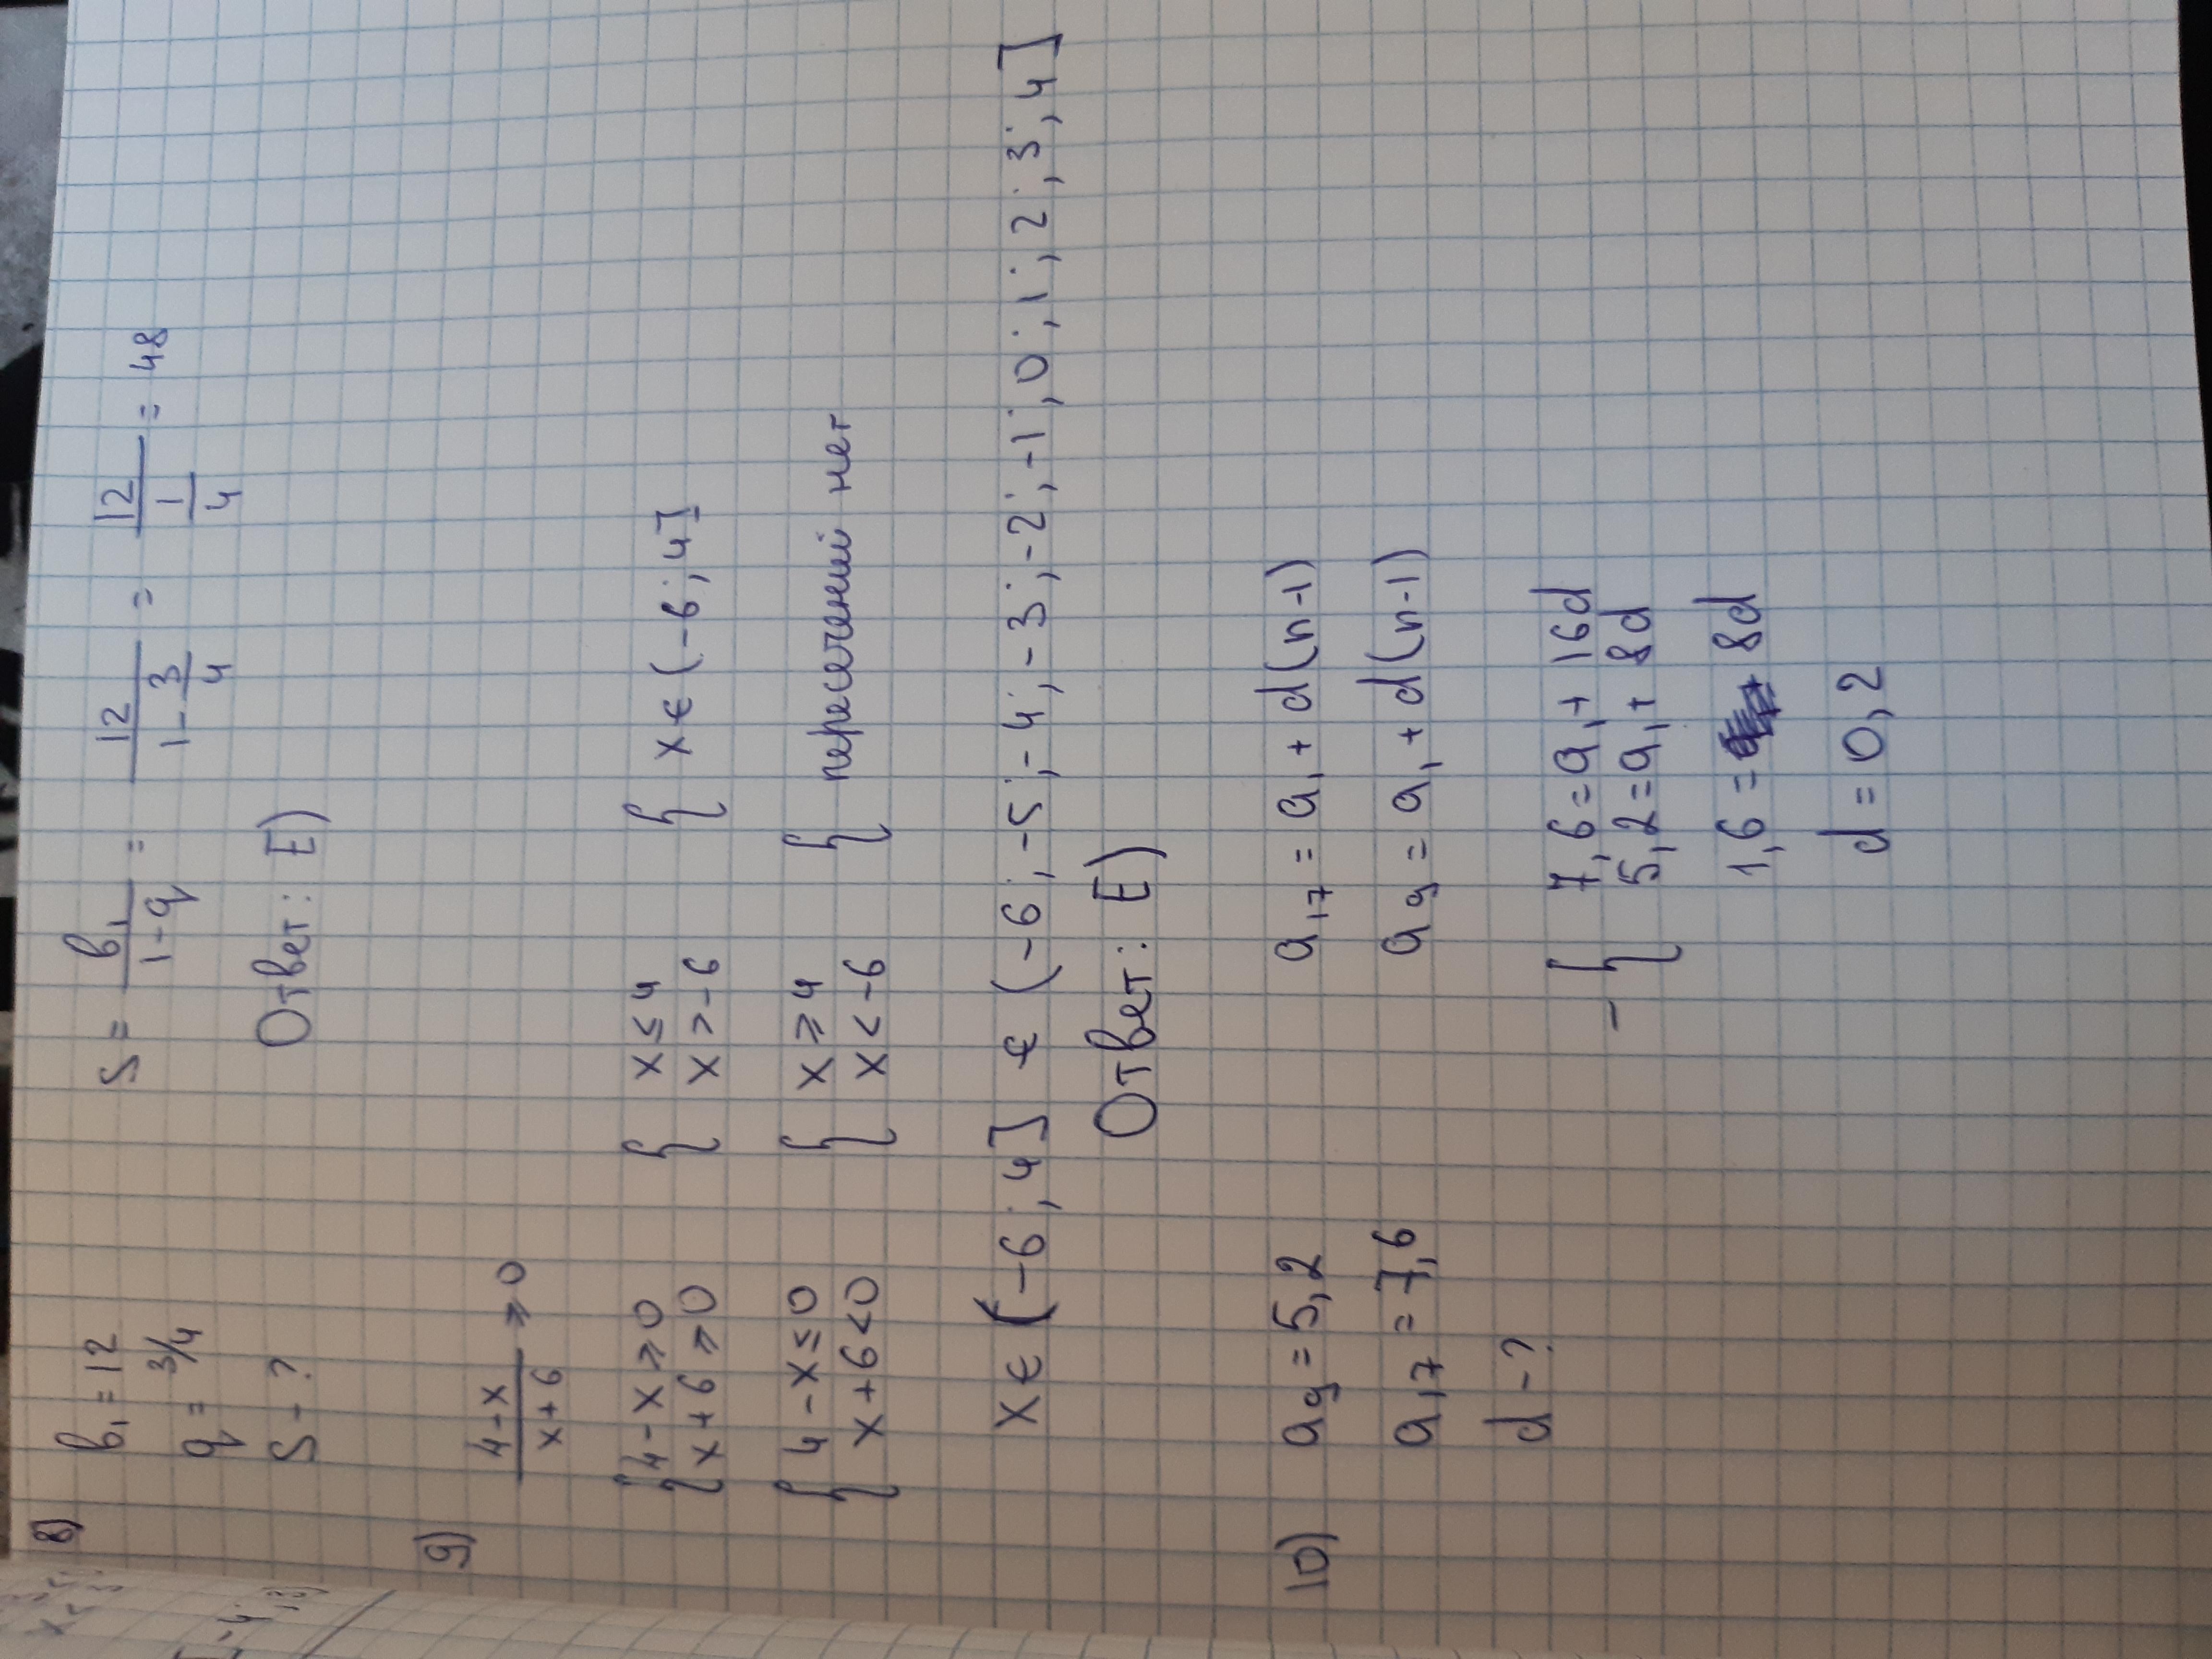 8)
b₁ = 12
q = 3/4
S - ?
S = b₁/(1-q) = 12/(1-3/4) = 12/(1/4) = 48
Ответ: E)
9)
(4-x)/(x+6) ≥ 0
{ 4-x ≥ 0 { x ≤ 4 { x ∈ (-6; 4]
x+6 ≥ 0 x > -6
{ 4-x ≤ 0 { x ≥ 4 { пересечений нет
x+6 < 0 x < -6
x ∈ (-6; 4] ∈ (-6; -5; -4; -3; -2; -1; 0; 1; 2; 3; 4]
Ответ: E)
10)
a₉ = 5,2 a₁₇ = a₁ + d(n-1)
a₁₇ = 7,6 a₉ = a₁ + d(n-1)
d - ?
- { 7,6 = a₁ + 16d
5,2 = a₁ + 8d
1,6 = 8d
d = 0,2